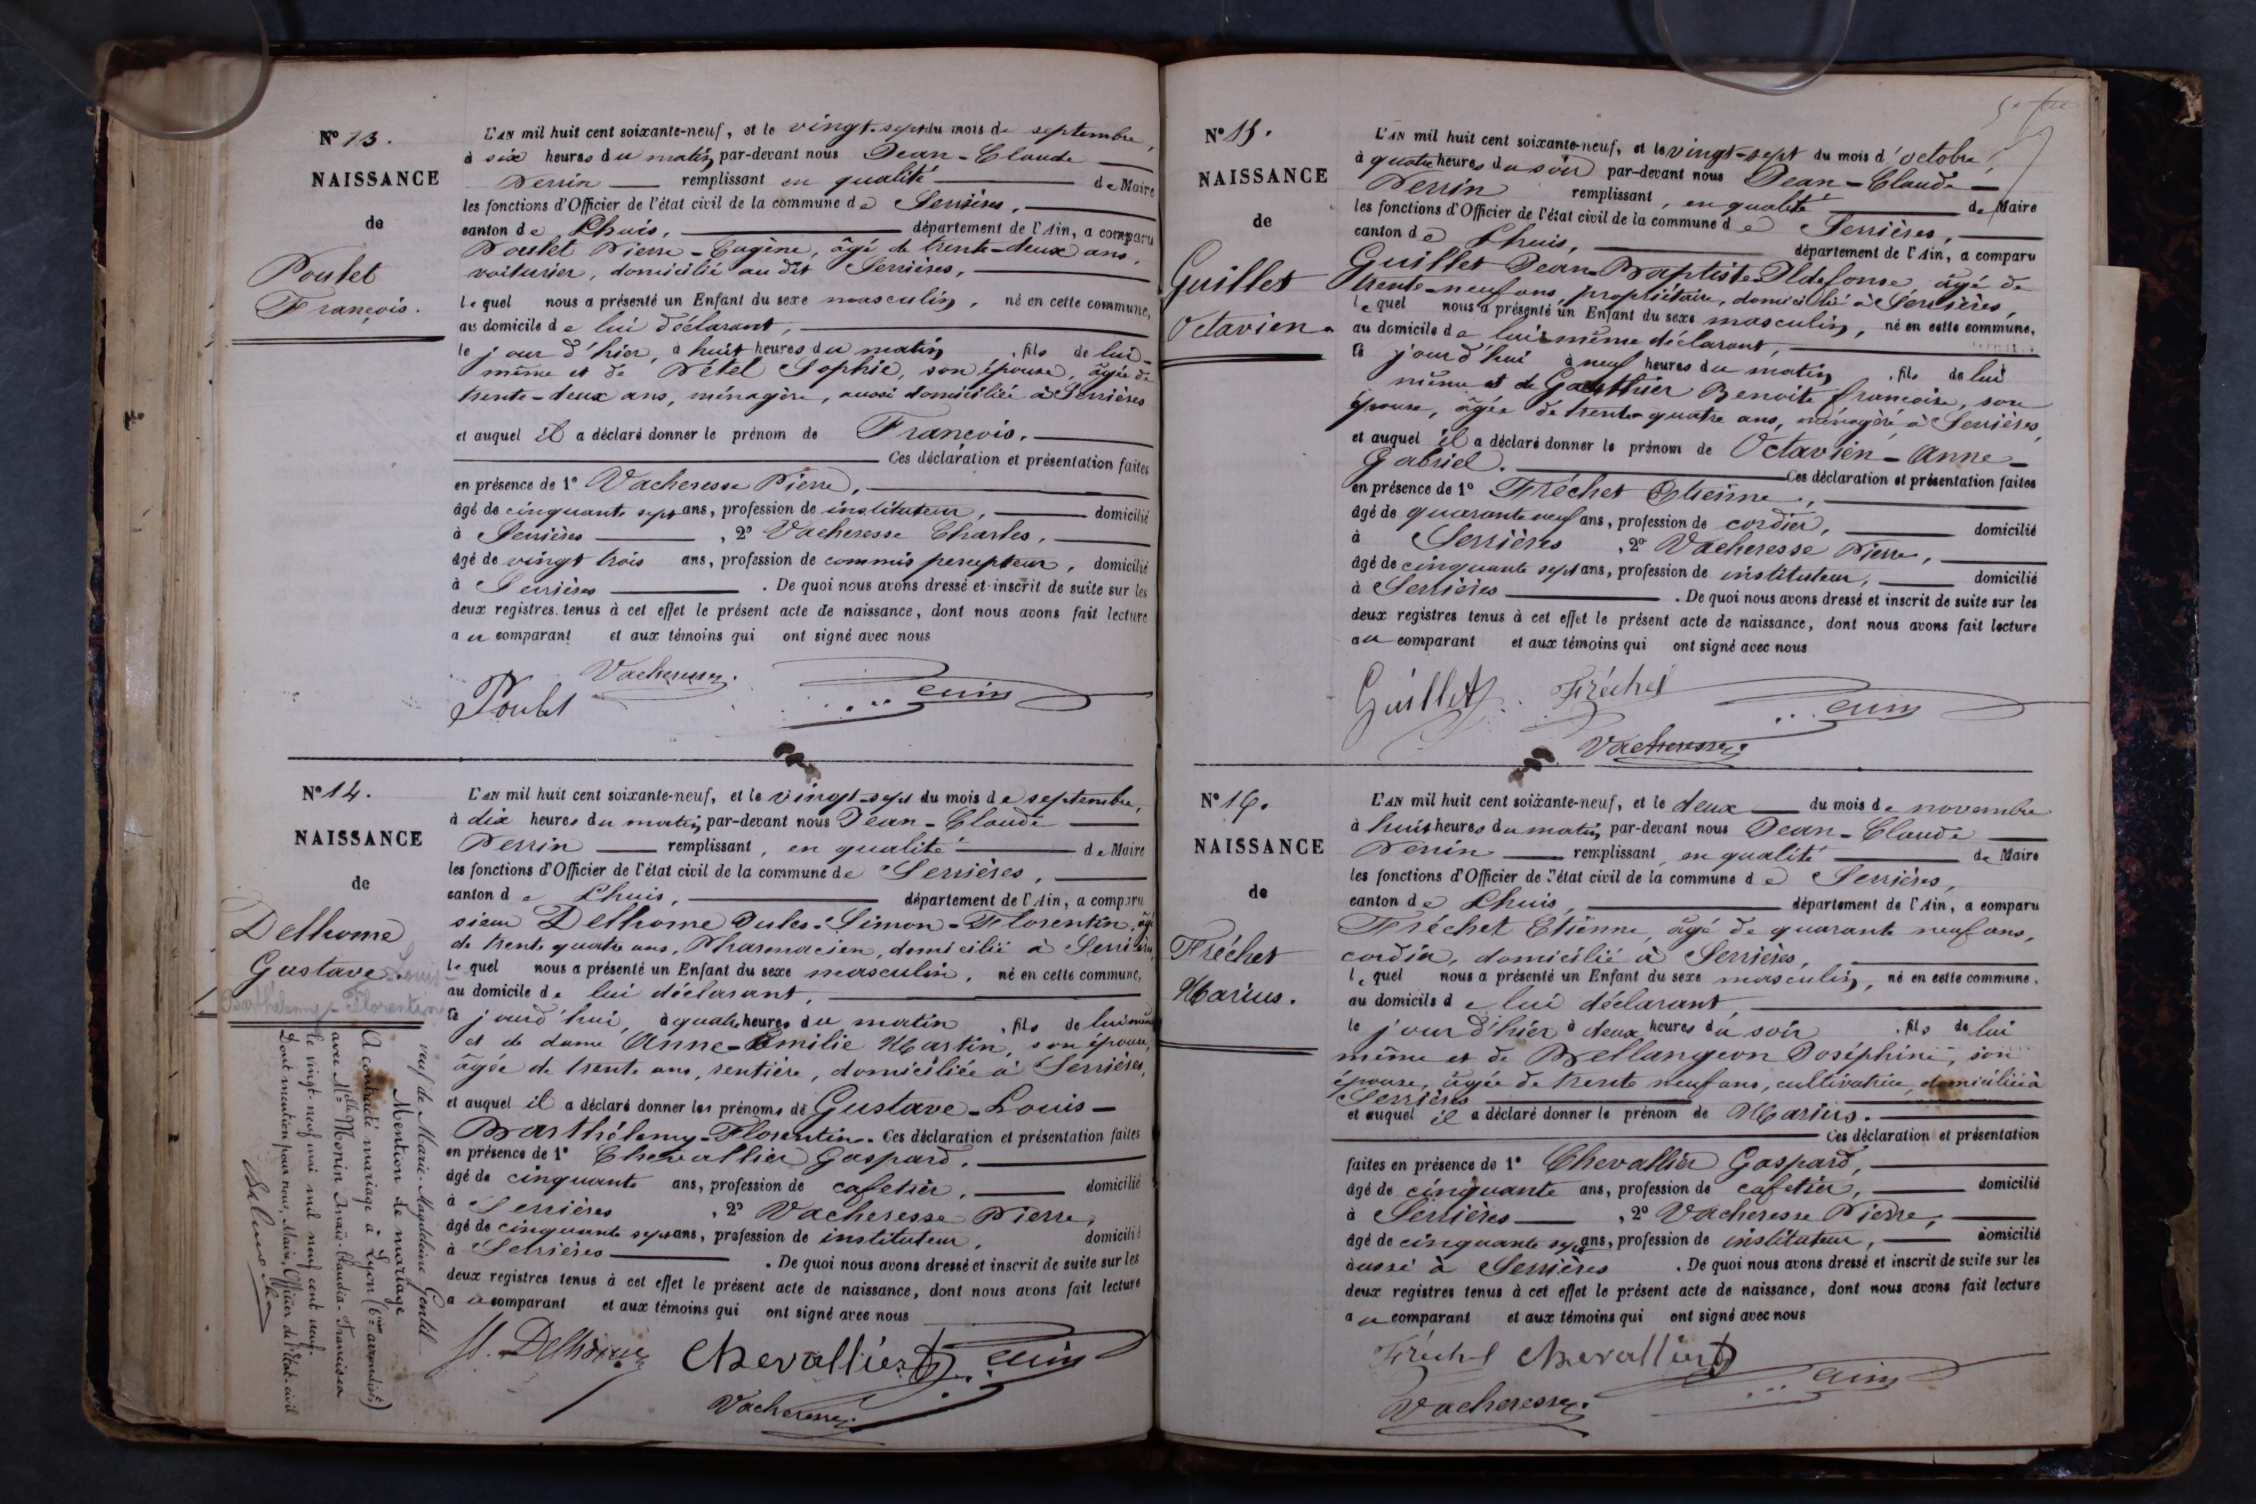 N° 13.
NAISSANCE
de
Poulet
François.
L'AN mil huit cent soixante-neuf, et le vingt-sept du mois de septembre,
à six heures du matin, par-devant nous Jean-Claude
Perrin remplissant en qualité de Maire
les fonctions d'Officier de l'état civil de la commune de Serrières,
canton de Lhuis, département de l'Ain, a comparu
Poulet Pierre-Eugène, âgé de trente-deux ans,
voiturier, domicilié au dit Serrières,
lequel nous a présenté un Enfant du sexe masculin, né en cette commune,
au domicile de lui déclarant,
le jour d'hier, à huit heures du matin, fils de lui-
même et de Pétel Sophie, son épouse, âgée de
trente-deux ans, ménagère, aussi domiciliée à Serrières
et auquel il a déclaré donner le prénom de François.
Ces déclaration et présentation faites
en présence de 1° Vacheresse Pierre,
âgé de cinquante sept ans, profession de instituteur, domicilié
à Serrières, 2° Vacheresse Charles,
âgé de vingt trois ans, profession de commis percepteur, domicilié
à Serrières. De quoi nous avons dressé et inscrit de suite sur les
deux registres tenus à cet effet le présent acte de naissance, dont nous avons fait lecture
au comparant et aux témoins qui ont signé avec nous
Vacheresse.
Poulet Perrin
N° 14.
NAISSANCE
de
Delhome
Gustave Louis
Barthélemy-Florentin
veuf de Marie-Magdeleine Gentil
Mention de mariage
A contracté mariage à Lyon (6me arrondisst)
avec Melle Monin Inaïs-Claudia-Francisca
le vingt-neuf mai mil neuf cent neuf.
Dont mention par nous, Maire, Officier de l'État-civil
L'AN mil huit cent soixante-neuf, et le vingt-sept du mois de septembre,
à dix heures du matin, par-devant nous Jean-Claude
Perrin remplissant, en qualité de Maire
les fonctions d'Officier de l'état civil de la commune de Serrières,
canton de Lhuis, département de l'Ain, a comparu
sieur Delhome Jules-Simon-Florentin, âgé
de trente quatre ans, Pharmacien, domicilié à Serrières,
lequel nous a présenté un Enfant du sexe masculin, né en cette commune,
au domicile de lui déclarant,
le jourd'hui, à quatre heures du matin, fils de lui même
et de dame Anne-Emilie Martin, son épouse,
âgée de trente ans, rentière, domiciliée à Serrières,
et auquel il a déclaré donner les prénoms de Gustave-Louis-
Barthélemy-Florentin. Ces déclaration et présentation faites
en présence de 1° Chevallier Gaspard,
âgé de cinquante ans, profession de cafetier, domicilié
à Serrières, 2° Vacheresse Pierre,
âgé de cinquante sept ans, profession de instituteur, domicilié
à Serrières. De quoi nous avons dressé et inscrit de suite sur les
deux registres tenus à cet effet le présent acte de naissance, dont nous avons fait lecture
au comparant et aux témoins qui ont signé avec nous
Delhome Chevallier Perrin
Vacheresse.
N° 15.
NAISSANCE
de
Guillet
Octavien.
L'AN mil huit cent soixante-neuf, et le vingt-sept du mois d'octobre,
à quatre heures du soir par-devant nous Jean-Claude
Perrin remplissant, en qualité de Maire
les fonctions d'Officier de l'état civil de la commune de Serrières,
canton de Lhuis, département de l'Ain, a comparu
Guillet Jean-Baptiste-Ildefonse, âgé de
trente-neuf ans, propriétaire, domicilié à Serrières,
lequel nous a présenté un Enfant du sexe masculin, né en cette commune,
au domicile de lui même déclarant,
le jourd'hui à neuf heures du matin, fils de lui
même et de Gauthier Benoite françoise, son
épouse, âgée de trente-quatre ans, ménagère à Serrières,
et auquel il a déclaré donner le prénom de Octavien-Anne-
Gabriel. Ces déclaration et présentation faites
en présence de 1° Fréchet Etienne,
âgé de quarante neuf ans, profession de cordier, domicilié
à Serrières, 2° Vacheresse Pierre,
âgé de cinquante sept ans, profession de instituteur, domicilié
à Serrières. De quoi nous avons dressé et inscrit de suite sur les
deux registres tenus à cet effet le présent acte de naissance, dont nous avons fait lecture
au comparant et aux témoins qui ont signé avec nous
Guillet Fréchet Perrin
Vacheresse.
N° 16.
NAISSANCE
de
Fréchet
Marius.
L'AN mil huit cent soixante-neuf, et le deux du mois de novembre
à huit heures du matin, par-devant nous Jean-Claude
Perrin remplissant, en qualité de Maire
les fonctions d'Officier de l'état civil de la commune de Serrières,
canton de Lhuis, département de l'Ain, a comparu
Fréchet Etienne, âgé de quarante neuf ans,
cordier, domicilié à Serrières,
lequel nous a présenté un Enfant du sexe masculin, né en cette commune,
au domicile de lui déclarant,
le jour d'hier à deux heures du soir, fils de lui
même et de Bellangeon Joséphine, son
épouse, âgée de trente neuf ans, cultivatrice, domiciliée à
Serrières
et auquel il a déclaré donner le prénom de Marius.
Ces déclaration et présentation
faites en présence de 1° Chevallier Gaspard,
âgé de cinquante ans, profession de cafetier, domicilié
à Serrières, 2° Vacheresse Pierre,
âgé de cinquante sept ans, profession de instituteur, domicilié
aussi à Serrières. De quoi nous avons dressé et inscrit de suite sur les
deux registres tenus à cet effet le présent acte de naissance, dont nous avons fait lecture
au comparant et aux témoins qui ont signé avec nous
Fréchet Chevallier Perrin
Vacheresse.